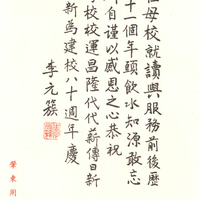 母校就讀與服務前後歷
十一個年頭飲水知源敢忘
自謹以感恩之心恭祝
校校運昌隆代代薪傳日新
新為建校八十週年慶
李元簇
肇東